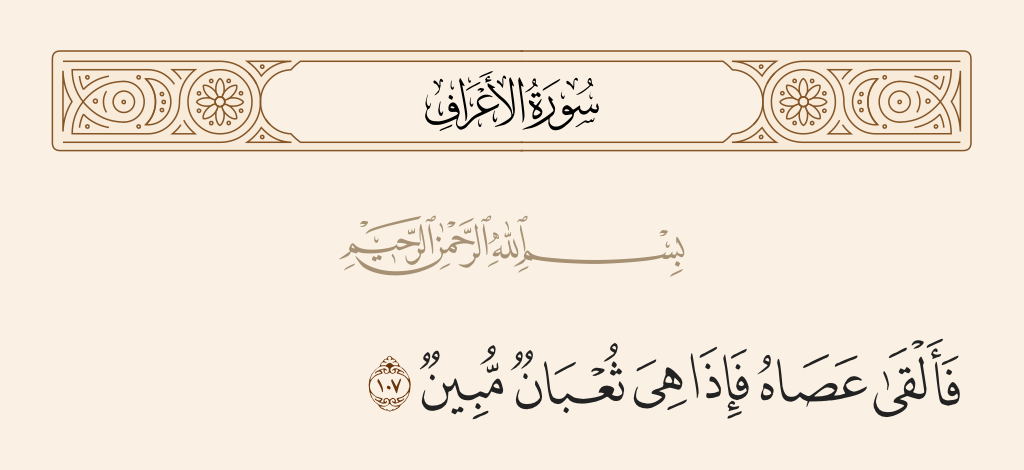 سُورَةُ الأَعْرَافِ
بِسْمِ ٱللَّهِ ٱلرَّحْمَٰنِ ٱلرَّحِيمِ
فَأَلْقَىٰ عَصَاهُ فَإِذَا هِىَ ثُعْبَانٌ مُّبِينٌ ١٠٧